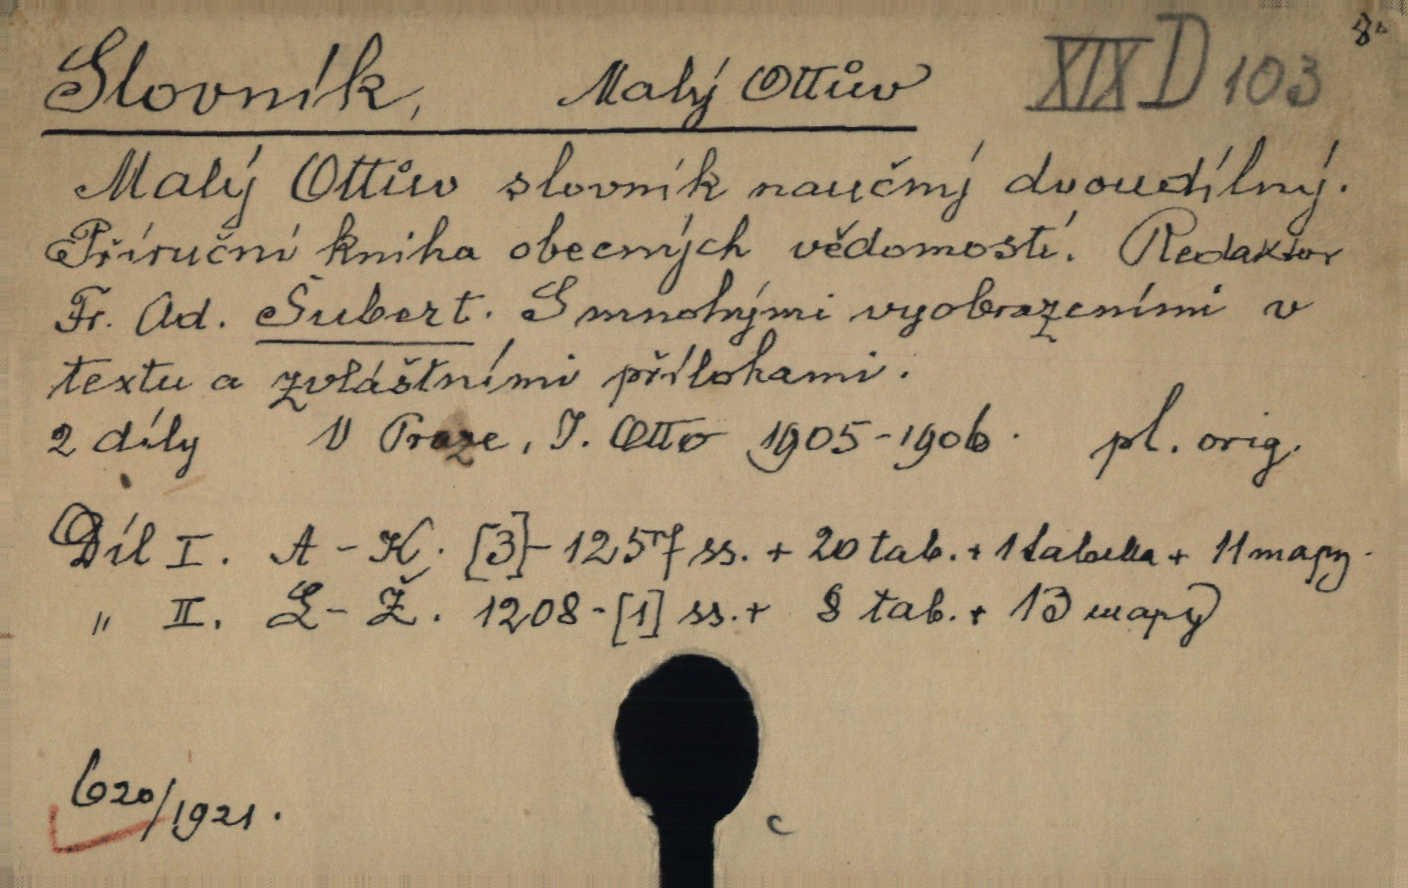 8°
Slovník, Malý Ottův XIX D 103
Malý Ottův slovník naučný dvoudílný.
Příruční kniha obecných vědomostí. Redaktor
Fr. Ad. Šubert. S mnohými vyobrazeními v
textu a zvláštními přílohami.
2 díly V Praze, J. Otto 1905-1906. pl. orig.
Díl I. A-K. [3]-1257 ss. + 20 tab. + 1 tabulka + 11 mapy.
" II. L-Ž. 1208-[1] ss. + 8 tab. + 13 mapy
620/1921.
c